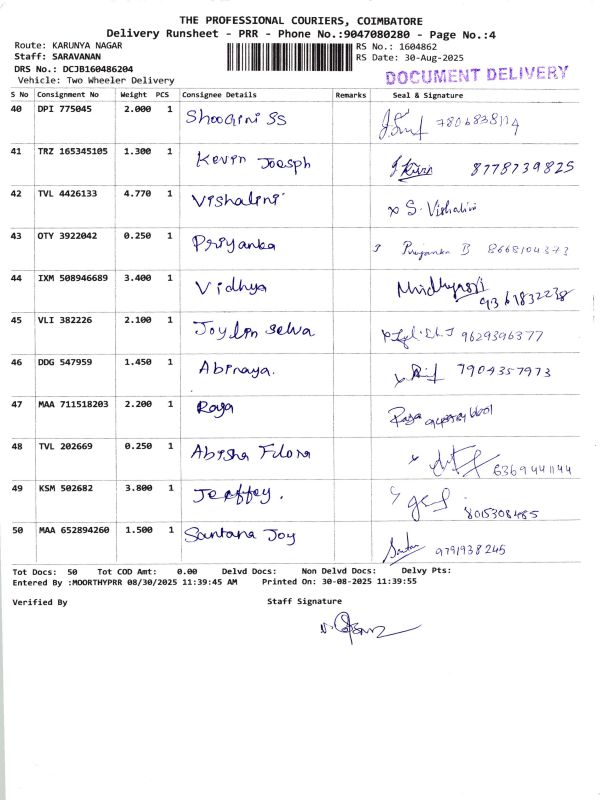 THE PROFESSIONAL COURIERS, COIMBATORE
Delivery Runsheet - PRR - Phone No.:9047080280 - Page No.:4
Route: KARUNYA NAGAR RS No.: 1604862
Staff: SARAVANAN RS Date: 30-Aug-2025
DRS No.: DCJB160486204 DOCUMENT DELIVERY
Vehicle: Two Wheeler Delivery
S No Consignment No Weight PCS Consignee Details Remarks Seal & Signature
40 DPI 775045 2.000 1 Shoogini SS 7806838114
41 TRZ 165345105 1.300 1 Kevin Joesph 8778739825
42 TVL 4426133 4.770 1 Vishalini x S. Vishalini
43 OTY 3922042 0.250 1 Priyanka Priyanka B 8668104373
44 IXM 508946689 3.400 1 Vidhya
9361832238
45 VLI 382226 2.100 1 Joylin Selva 9629396377
46 DDG 547959 1.450 1 Abinaya. 7904357973
47 MAA 711518203 2.200 1 Raga Raga
48 TVL 202669 0.250 1 Abisha Filora 6369441144
49 KSM 502682 3.800 1 Jeffey. 8015308485
50 MAA 652894260 1.500 1 Santana Joy 9791938245
Tot Docs: 50 Tot COD Amt: 0.00 Delvd Docs: Non Delvd Docs: Delvy Pts:
Entered By :MOORTHYPRR 08/30/2025 11:39:45 AM Printed On: 30-08-2025 11:39:55
Verified By Staff Signature